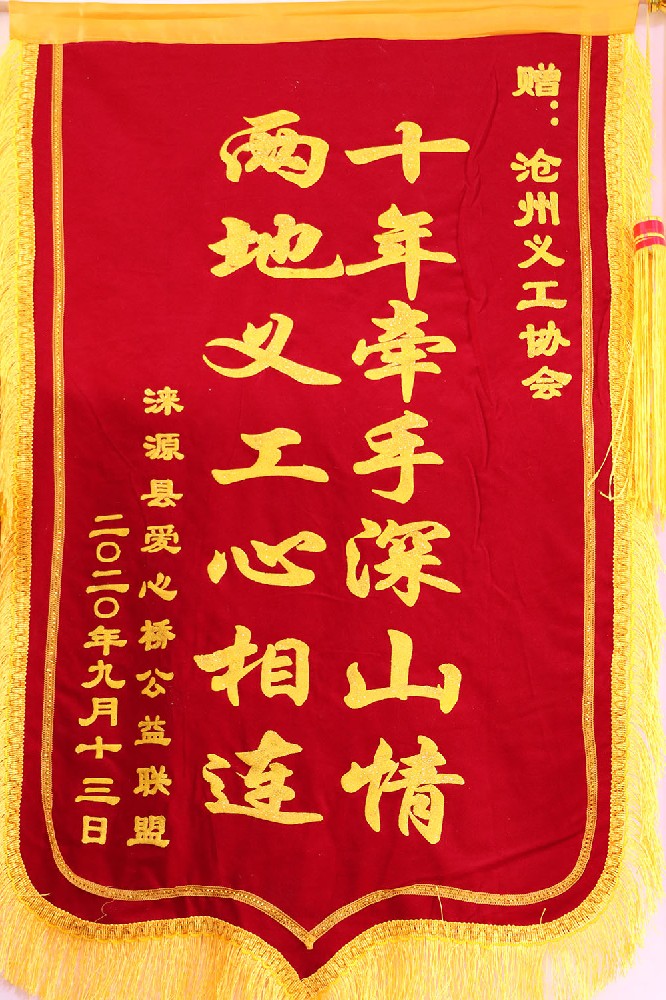 赠：沧州义工协会
十年牵手深山情
两地义工心相连
涞源县爱心桥公益联盟
二〇二〇年九月十三日